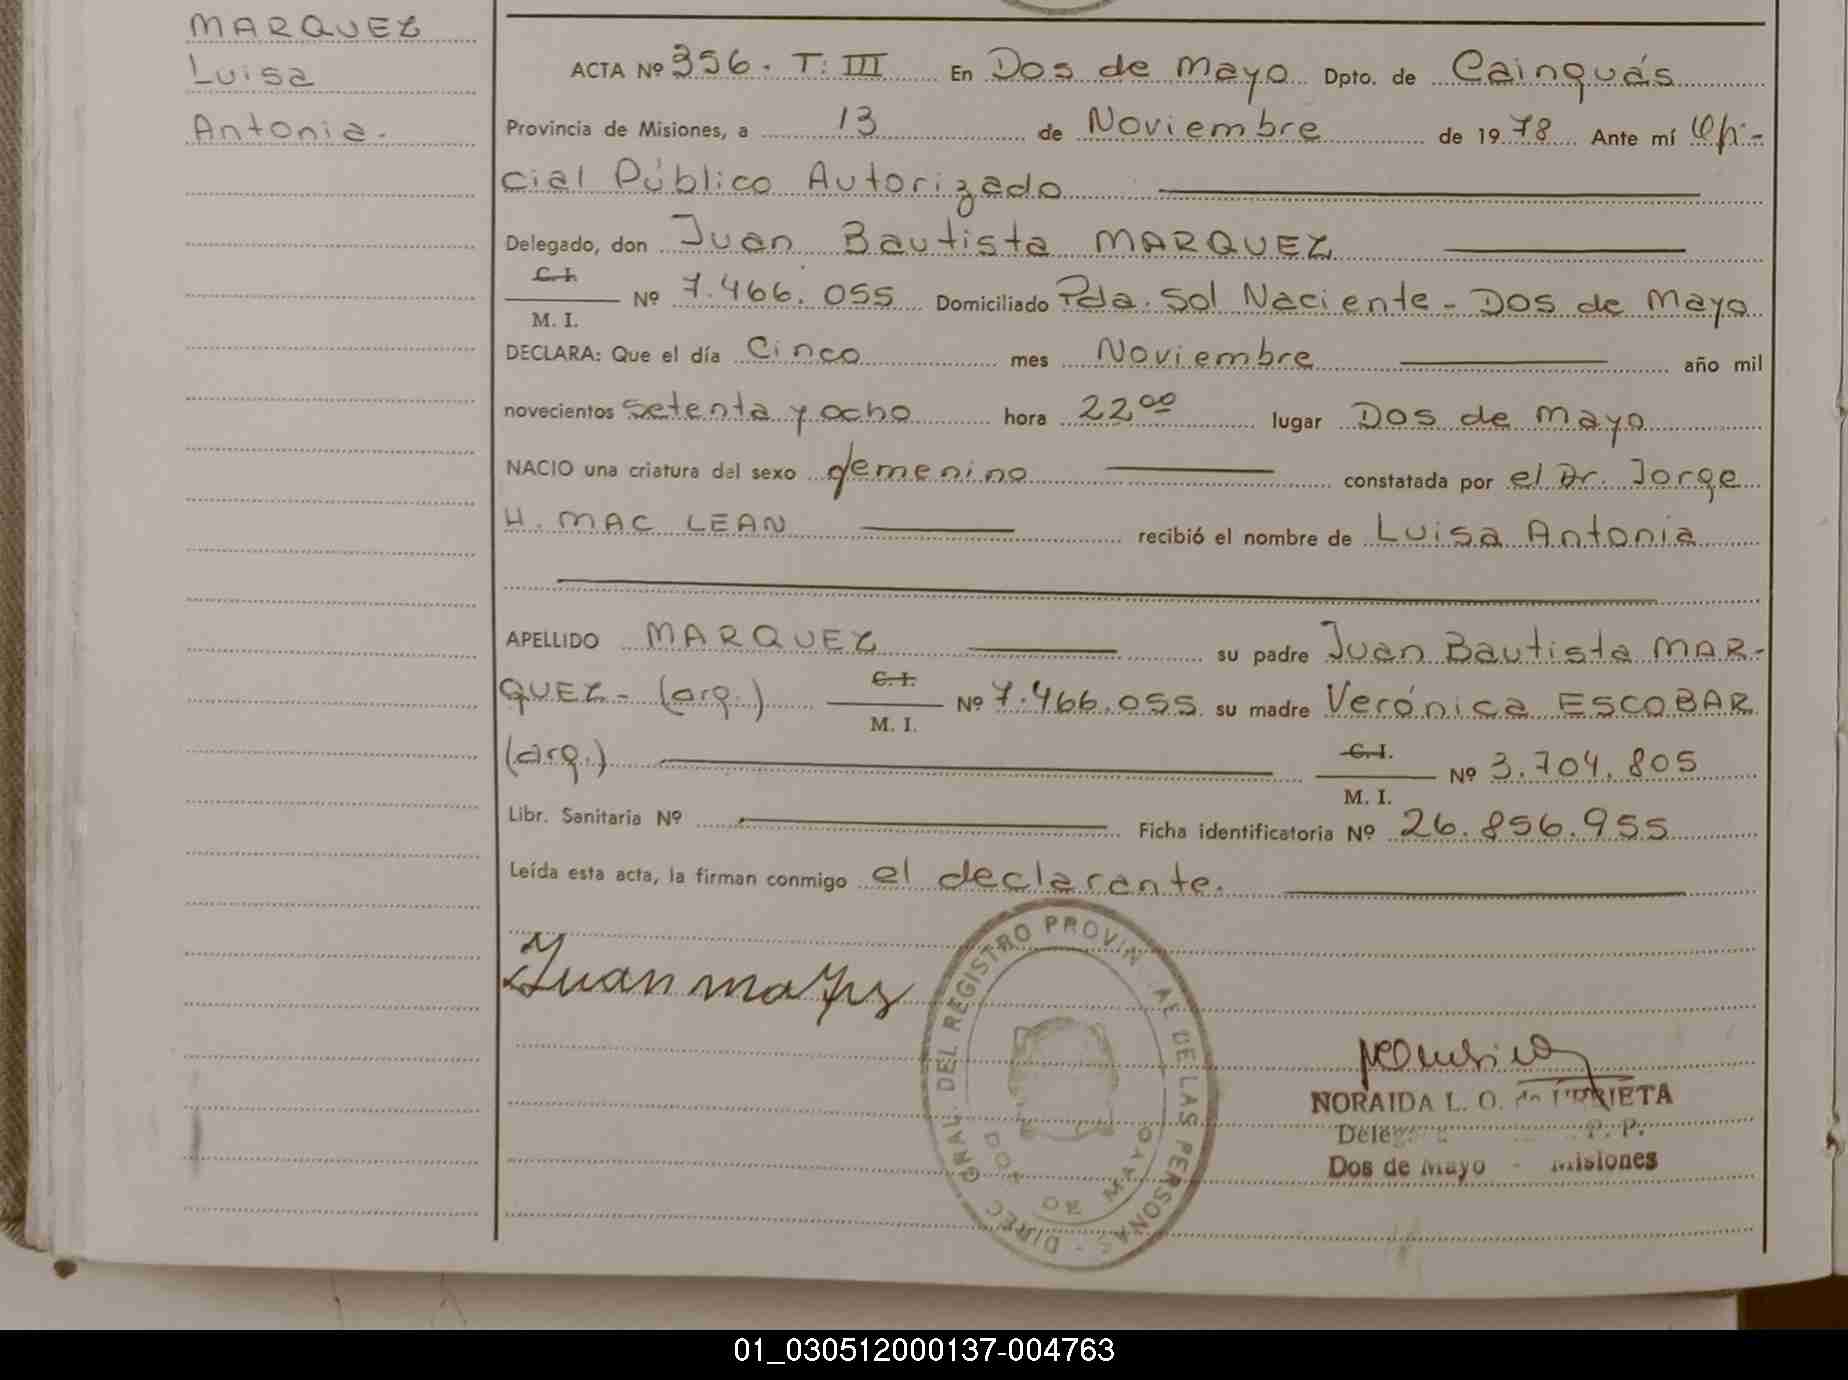 MARQUEZ
Luisa
Antonia.
ACTA Nº 356. T: III En Dos de Mayo Dpto. de Cainguás
Provincia de Misiones, a 13 de Noviembre de 1978 Ante mí Ofi-
cial Público Autorizado
Delegado, don Juan Bautista MARQUEZ
C. I.
Nº 7.466.055 Domiciliado Pda. Sol Naciente - Dos de Mayo
M. I.
DECLARA: Que el día Cinco mes Noviembre año mil
novecientos setenta y ocho hora 22⁰⁰ lugar Dos de Mayo
NACIO una criatura del sexo femenino constatada por el Dr. Jorge
H. MAC LEAN recibió el nombre de Luisa Antonia
APELLIDO MARQUEZ su padre Juan Bautista MAR-
QUEZ - (arg.) C. I. Nº 7.466.055 su madre Verónica ESCOBAR
M. I.
(arg.) C. I. Nº 3.704.805
M. I.
Libr. Sanitaria Nº Ficha identificatoria Nº 26.856.955
Leída esta acta, la firman conmigo el declarante.
Juan
DIREC. GRAL. DEL REGISTRO PROVIN AL DE LAS PERSONAS -
DOS DE MAYO
NORAIDA L. O. de URRIETA
P. P.
Dos de Mayo - Misiones
01_030512000137-004763